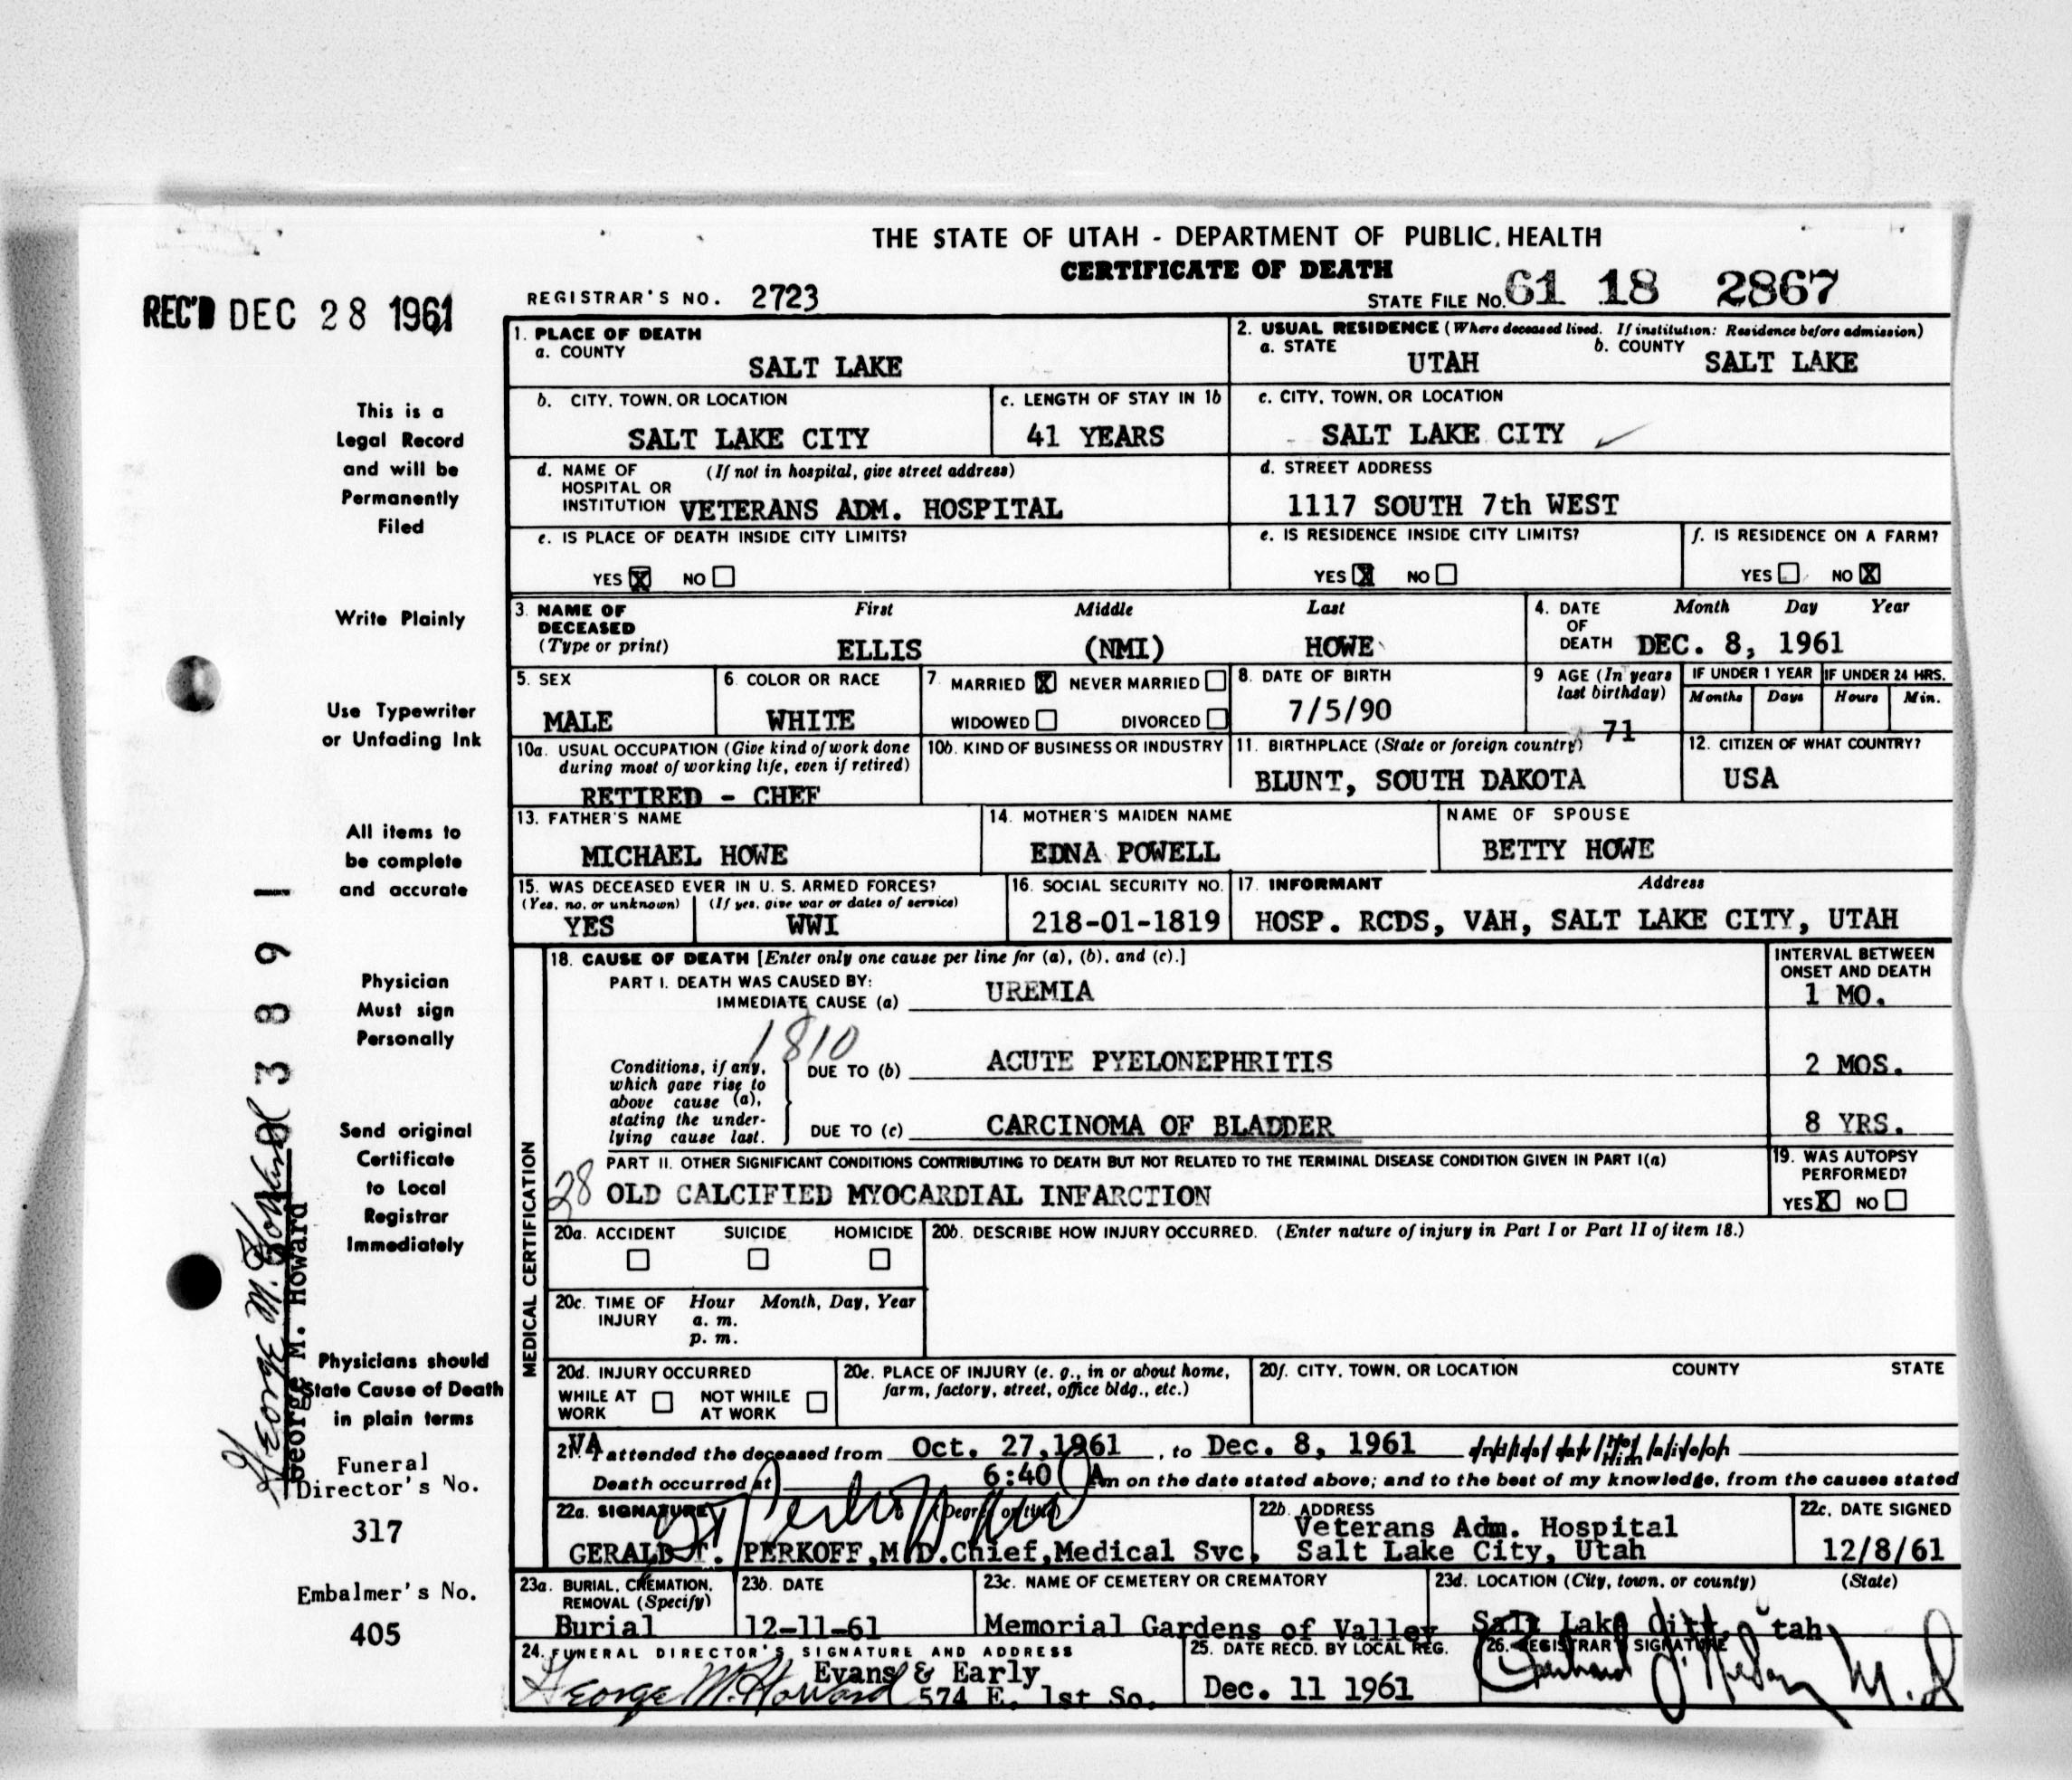 THE STATE OF UTAH - DEPARTMENT OF PUBLIC HEALTH
CERTIFICATE OF DEATH
REC'D DEC 28 1961
REGISTRAR'S NO. 2723
STATE FILE NO. 61 18 2867
This is a
Legal Record
and will be
Permanently
Filed
Write Plainly
Use Typewriter
or Unfading Ink
All items to
be complete
and accurate
Physician
Must sign
Personally
Send original
Certificate
to Local
Registrar
Immediately
Physicians should
State Cause of Death
in plain terms
Funeral
Director's No.
317
Embalmer's No.
405
George M. Howard
George M. Howard
3 8 9 1
1. PLACE OF DEATH
a. COUNTY
SALT LAKE
2. USUAL RESIDENCE (Where deceased lived. If institution: Residence before admission)
a. STATE UTAH b. COUNTY SALT LAKE
b. CITY, TOWN, OR LOCATION
SALT LAKE CITY
c. LENGTH OF STAY IN 1b
41 YEARS
c. CITY, TOWN, OR LOCATION
SALT LAKE CITY
d. NAME OF HOSPITAL OR INSTITUTION (If not in hospital, give street address)
VETERANS ADM. HOSPITAL
d. STREET ADDRESS
1117 SOUTH 7th WEST
e. IS PLACE OF DEATH INSIDE CITY LIMITS?
YES X NO
e. IS RESIDENCE INSIDE CITY LIMITS?
YES X NO
f. IS RESIDENCE ON A FARM?
YES NO X
3. NAME OF DECEASED (Type or print)
First Middle Last
ELLIS (NMI) HOWE
4. DATE OF DEATH Month Day Year
DEC. 8, 1961
5. SEX
MALE
6. COLOR OR RACE
WHITE
7. MARRIED X NEVER MARRIED
WIDOWED DIVORCED
8. DATE OF BIRTH
7/5/90
9 AGE (In years last birthday)
71
IF UNDER 1 YEAR IF UNDER 24 HRS.
Months Days Hours Min.
10a. USUAL OCCUPATION (Give kind of work done
during most of working life, even if retired)
RETIRED - CHEF
10b. KIND OF BUSINESS OR INDUSTRY
11. BIRTHPLACE (State or foreign country)
BLUNT, SOUTH DAKOTA
12. CITIZEN OF WHAT COUNTRY?
USA
13. FATHER'S NAME
MICHAEL HOWE
14. MOTHER'S MAIDEN NAME
EDNA POWELL
NAME OF SPOUSE
BETTY HOWE
15. WAS DECEASED EVER IN U. S. ARMED FORCES?
(Yes, no, or unknown) (If yes, give war or dates of service)
YES WWI
16. SOCIAL SECURITY NO.
218-01-1819
17. INFORMANT Address
HOSP. RCDS, VAH, SALT LAKE CITY, UTAH
MEDICAL CERTIFICATION
18. CAUSE OF DEATH [Enter only one cause per line for (a), (b), and (c).]
INTERVAL BETWEEN
ONSET AND DEATH
PART I. DEATH WAS CAUSED BY:
IMMEDIATE CAUSE (a) UREMIA 1 MO.
1810
Conditions, if any,
which gave rise to
above cause (a),
stating the under-
lying cause last.
DUE TO (b) ACUTE PYELONEPHRITIS 2 MOS.
DUE TO (c) CARCINOMA OF BLADDER 8 YRS.
PART II. OTHER SIGNIFICANT CONDITIONS CONTRIBUTING TO DEATH BUT NOT RELATED TO THE TERMINAL DISEASE CONDITION GIVEN IN PART I(a)
OLD CALCIFIED MYOCARDIAL INFARCTION
19. WAS AUTOPSY
PERFORMED?
YES X NO
20a. ACCIDENT SUICIDE HOMICIDE
20b. DESCRIBE HOW INJURY OCCURRED. (Enter nature of injury in Part I or Part II of item 18.)
20c. TIME OF INJURY Hour Month, Day, Year
a. m.
p. m.
20d. INJURY OCCURRED
WHILE AT WORK NOT WHILE AT WORK
20e. PLACE OF INJURY (e. g., in or about home,
farm, factory, street, office bldg., etc.)
20f. CITY, TOWN, OR LOCATION COUNTY STATE
21. VA attended the deceased from Oct. 27, 1961, to Dec. 8, 1961
Death occurred at 6:40 A m on the date stated above; and to the best of my knowledge, from the causes stated
22a. SIGNATURE (Degree or title)
GERALD T. PERKOFF, M.D. Chief, Medical Svc.
22b. ADDRESS
Veterans Adm. Hospital
Salt Lake City, Utah
22c. DATE SIGNED
12/8/61
23a. BURIAL, CREMATION,
REMOVAL (Specify)
Burial
23b. DATE
12-11-61
23c. NAME OF CEMETERY OR CREMATORY
Memorial Gardens of Valley
23d. LOCATION (City, town, or county) (State)
Salt Lake City, Utah
24. FUNERAL DIRECTOR'S SIGNATURE AND ADDRESS
George M. Howard Evans & Early
574 E. 1st So.
25. DATE RECD. BY LOCAL REG.
Dec. 11 1961
26. REGISTRAR'S SIGNATURE